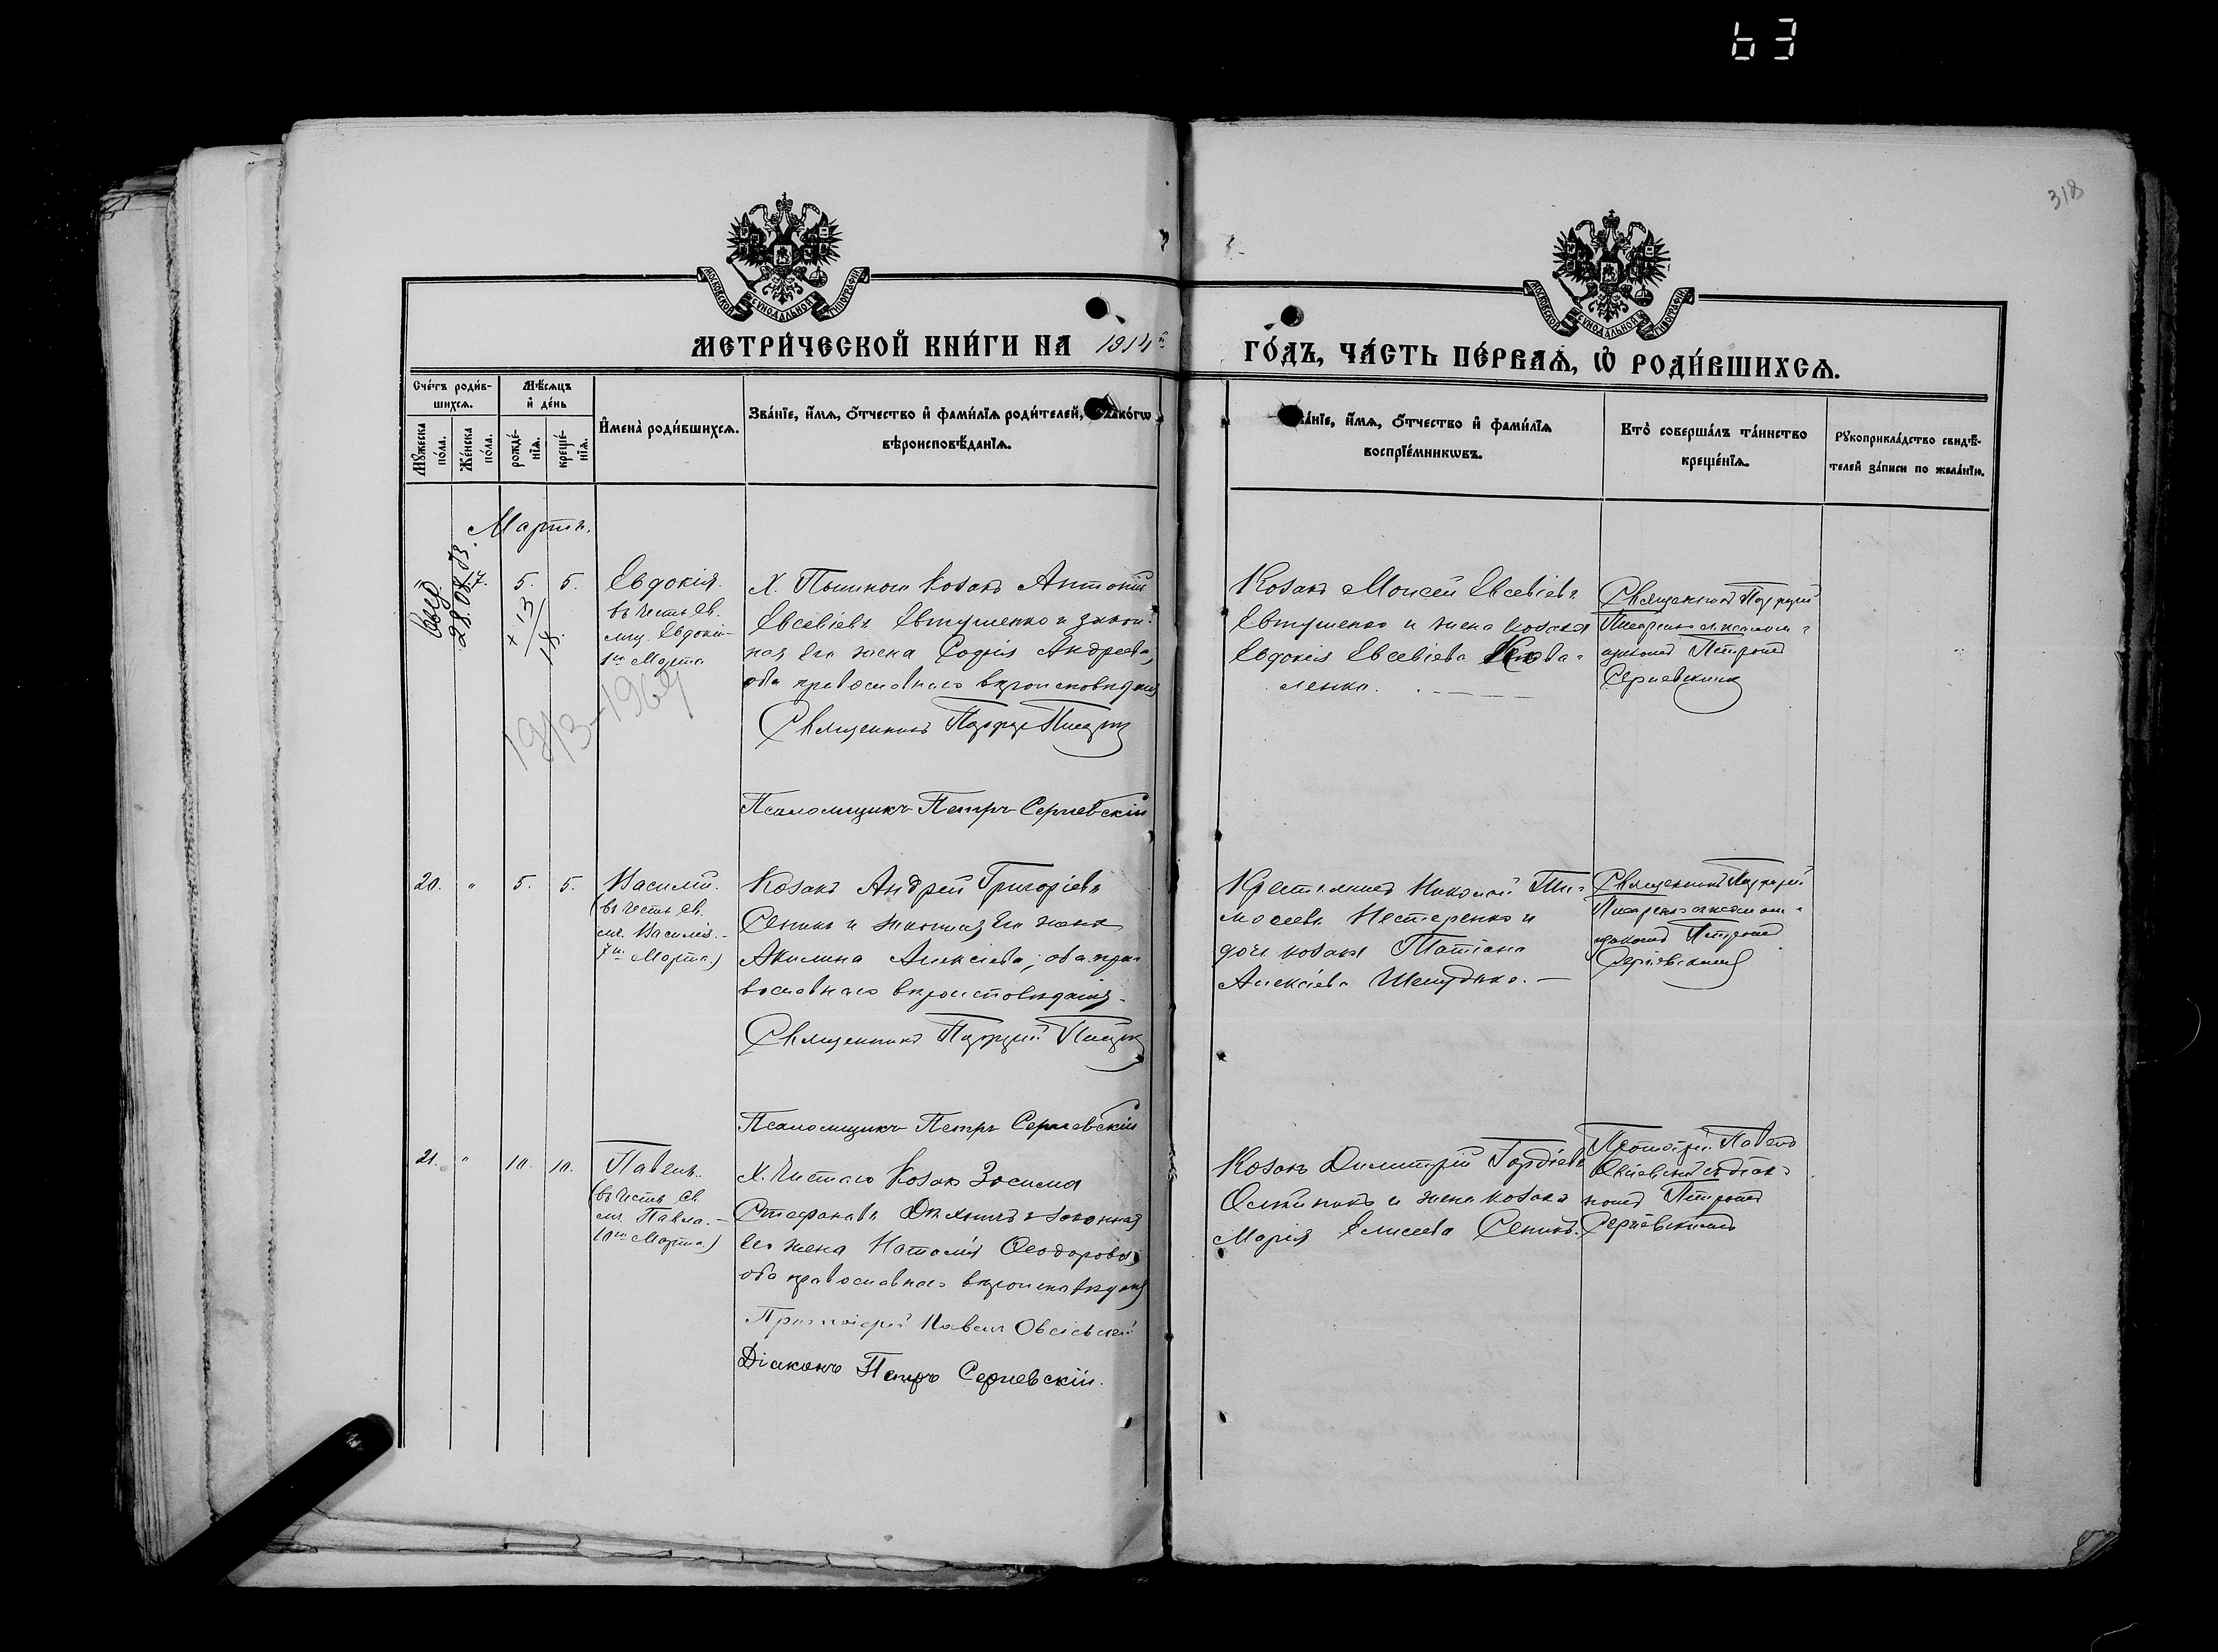 63
318
МОСКОВСКОЙ СѴНОДАЛЬНОЙ ТИПОГРАФІИ
МОСКОВСКОЙ СѴНОДАЛЬНОЙ ТИПОГРАФІИ
МЕТРИ́ЧЕСКОЙ КНИ́ГИ НА 1914й
ГО́ДЪ, ЧА́СТЬ ПЕ́РВАѦ, Ѽ РОДИ́ВШИХСѦ.
Сче́тъ роди́в-
шихсѧ.
Мѣ́сѧцъ
и҆ де́нь
Мꙋ́жеска
по́ла.
Же́нска
по́ла.
рожде́-
нїѧ.
креще́-
нїѧ.
И҆мена̀ роди́вшихсѧ.
Зва́нїе, и҆́мѧ, ѻ҆́тчество и҆ фами́лїѧ роди́телей, како́гѡ
вѣроисповѣ́данїѧ.
ва́нїе, и҆́мѧ, ѻ҆́тчество и҆ фами́лїѧ
воспрїе́мникѡвъ.
Кто̀ соверша́лъ та́инство
креще́нїѧ.
Рꙋкоприкла́дство свидѣ́-
телей за́писи по жела́нїю.
Мартъ.
28.08.
17.
5.
5.
+ 13/18.
Евдокія.
въ честь св.
мц. Евдокіи
1го Марта
1913-1969
Х. Козакъ Антоній
Евсевіевъ Евтушенко и закон-
ная его жена Софія Андреева,
оба православнаго вѣроисповѣданія
Священникъ
Псаломщикъ Петръ Сергіевскій
Козакъ Моисей Евсевіевъ
Евтушенко и жена козака
Евдокія Евсевіева Кова-
ленко.
Священникъ
псалом-
щикомъ Петромъ
Сергіевскимъ
20.
"
5.
5.
Василій.
(въ честь св.
мч. Василія.
7го Марта.)
Козакъ Андрей Григоріевъ
Сеникъ и законная его жена
Акилина Алексіева, оба пра-
вославнаго вѣроисповѣданія.
Священникъ
Псаломщикъ Петръ Сергіевскій
Крестьянинъ Николай Ти-
моѳеевъ Нестеренко и
дочь козака Татіана
Алексіева
Священникъ
псалом-
щикомъ Петромъ
Сергіевскимъ
21.
"
10.
10.
Павелъ.
(въ честь св.
мч. Павла.
10го Марта)
Х. Чистаго Козакъ Зосима
Стефановъ и законная
его жена Наталія Ѳеодорова,
оба православнаго вѣроисповѣданія
Протоіерей Павелъ Овсіевскій
Діаконъ Петръ Сергіевскій.
Козакъ Димитрій Гордіевъ
Олейникъ и жена козака
Марія Елисеева Сеникъ.
Протоіерей Павелъ
Овсіевскій съ діако-
номъ Петромъ
Сергіевскимъ